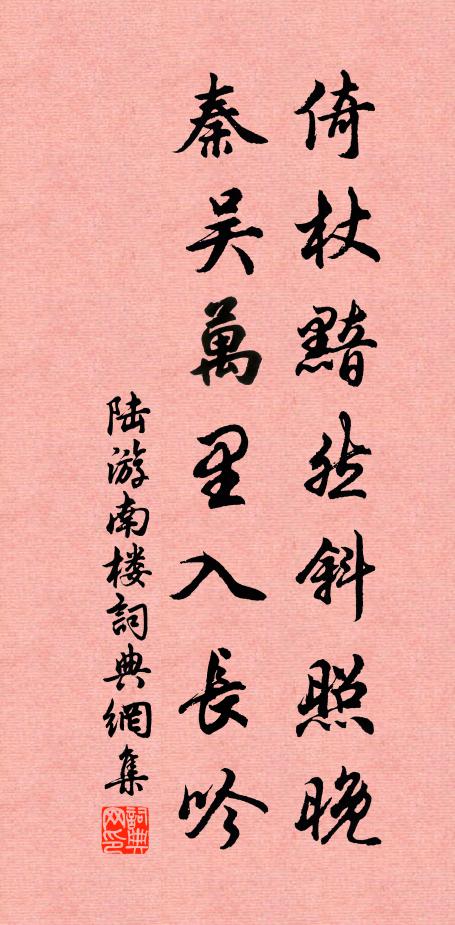 倚杖黯然斜照晚
秦吴萬里入長吟
陆游南楼詞典網集
詞典
网印